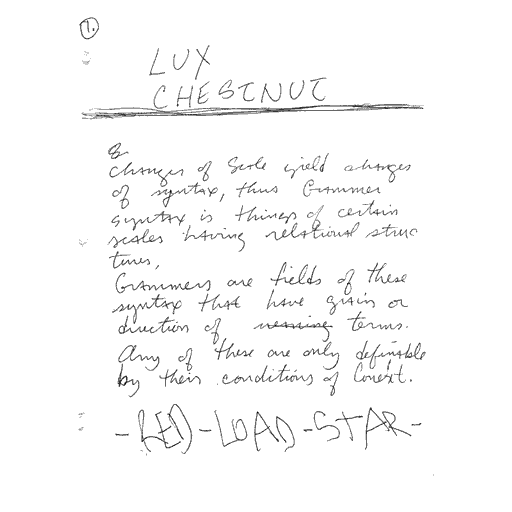 1.
LUX
CHESTNUT
&
changes of Scale yield changes
of syntax, thus Grammer
syntax is things of certain
scales having relational struc
tures,
Grammers are fields of these
syntax that have grain or
direction of meaning terms.
Any of these are only definable
by their conditions of Conext.
-RED-LOAD-STAR-